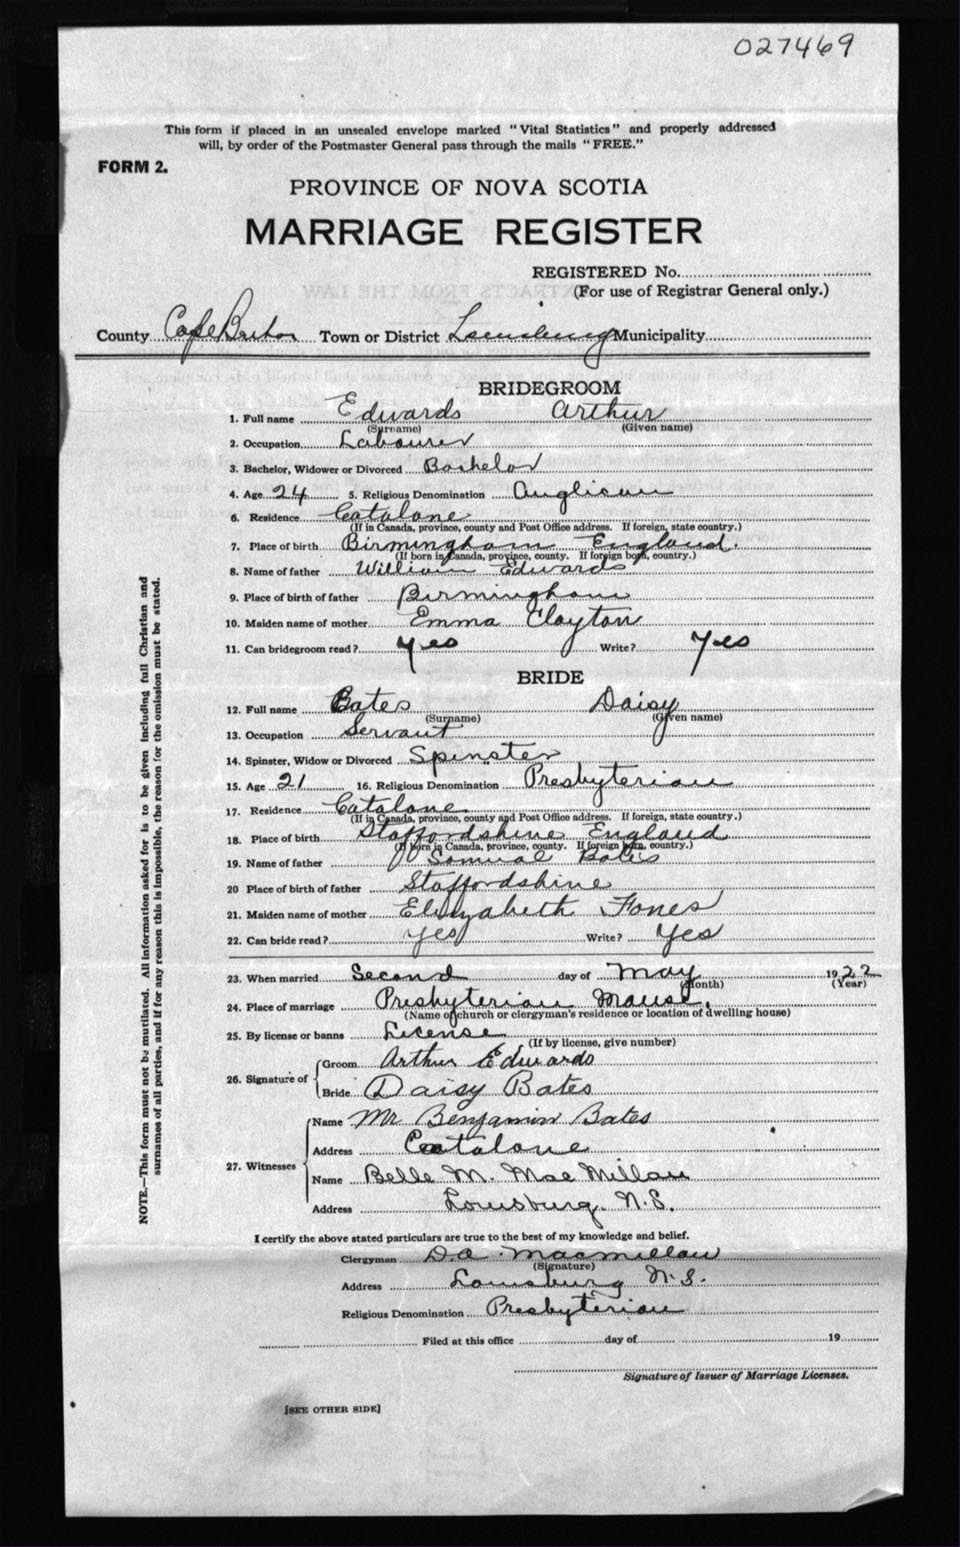 027469
This form if placed in an unsealed envelope marked "Vital Statistics" and properly addressed
will, by order of the Postmaster General pass through the mails "FREE."
FORM 2.
PROVINCE OF NOVA SCOTIA
MARRIAGE REGISTER
REGISTERED No.
(For use of Registrar General only.)
County Cape Breton Town or District Louisburg Municipality
BRIDEGROOM
1. Full name Edwards Arthur
(Surname) (Given name)
2. Occupation Labourer
3. Bachelor, Widower or Divorced Bachelor
4. Age 24 5. Religious Denomination Anglican
6. Residence Catalone
(If in Canada, province, county and Post Office address. If foreign, state country.)
7. Place of birth Birmingham England.
(If born in Canada, province, county. If foreign born, country.)
8. Name of father William Edwards
9. Place of birth of father Birmingham
10. Maiden name of mother Emma Clayton
11. Can bridegroom read? Yes Write? Yes
BRIDE
12. Full name Bates Daisy
(Surname) (Given name)
13. Occupation Servant
14. Spinster, Widow or Divorced Spinster
15. Age 21 16. Religious Denomination Presbyterian
17. Residence Catalone
(If in Canada, province, county and Post Office address. If foreign, state country.)
18. Place of birth Staffordshire England
(If born in Canada, province, county. If foreign born, country.)
19. Name of father Samual Bates
20 Place of birth of father Staffordshire
21. Maiden name of mother Elizabeth Jones
22. Can bride read? yes Write? yes
23. When married Second day of May 1922
(Month) (Year)
24. Place of marriage Presbyterian Manse.
(Name of church or clergyman's residence or location of dwelling house)
25. By license or banns License
(If by license, give number)
26. Signature of Groom Arthur Edwards
Bride Daisy Bates
27. Witnesses Name Mr Benjamin Bates
Address Catalone
Name Belle M. MacMillan
Address Louisburg. N.S.
I certify the above stated particulars are true to the best of my knowledge and belief.
Clergyman D.A. Macmillan
(Signature)
Address Louisburg N.S.
Religious Denomination Presbyterian
Filed at this office day of 19
Signature of Issuer of Marriage Licenses.
[SEE OTHER SIDE]
NOTE.—This form must not be mutilated. All information asked for is to be given including full Christian and
surnames of all parties, and if for any reason this is impossible, the reason for the omission must be stated.